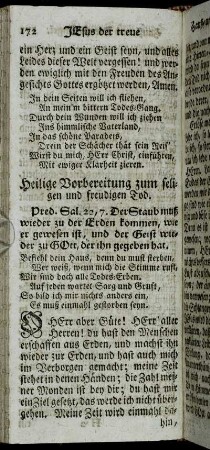 172 JEsus der treue
ein Herz und ein Geist seyn, und alles
Leides dieser Welt vergessen! und wer-
den ewiglich mit den Freuden des An-
gesichts Gottes ergötzet werden, Amen.
In dein Seiten will ich fliehen,
An mein'm bittern Todes-Gang,
Durch dein Wunden will ich ziehen
Ins himmlische Vaterland,
In das schöne Paradeis,
Drein der Schächer thät sein Reis'
Wirst du mich, HErr Christ, einführen,
Mit ewiger Klarheit zieren.
Heilige Vorbereitung zum seli-
gen und freudigen Tod.
Pred. Sal. 12, 7. Der Staub muß
wieder zu der Erden kommen, wie
er gewesen ist, und der Geist wie-
der zu GOtt, der ihn gegeben hat.
Befiehl dein Haus, denn du must sterben.
Wer weiß, wenn mich die Stimme ruft,
Wir sind doch alle Todes-Erben.
Auf jeden wartet Sarg und Gruft,
So bild ich mir nichts anders ein,
Es muß einmahl gestorben seyn.
O HErr aber Güte! HErr aller
Herren! du hast den Menschen
erschaffen aus Erden, und machst ihn
wieder zur Erden, und hast auch mich
im Verborgen gemacht; meine Zeit
stehet in denen Händen; die Zahl mei-
ner Monden ist bey dir; du hast mir
ein Ziel gesetzt, das werde ich nicht über-
gehen. Meine Zeit wird einmahl da-
hin,